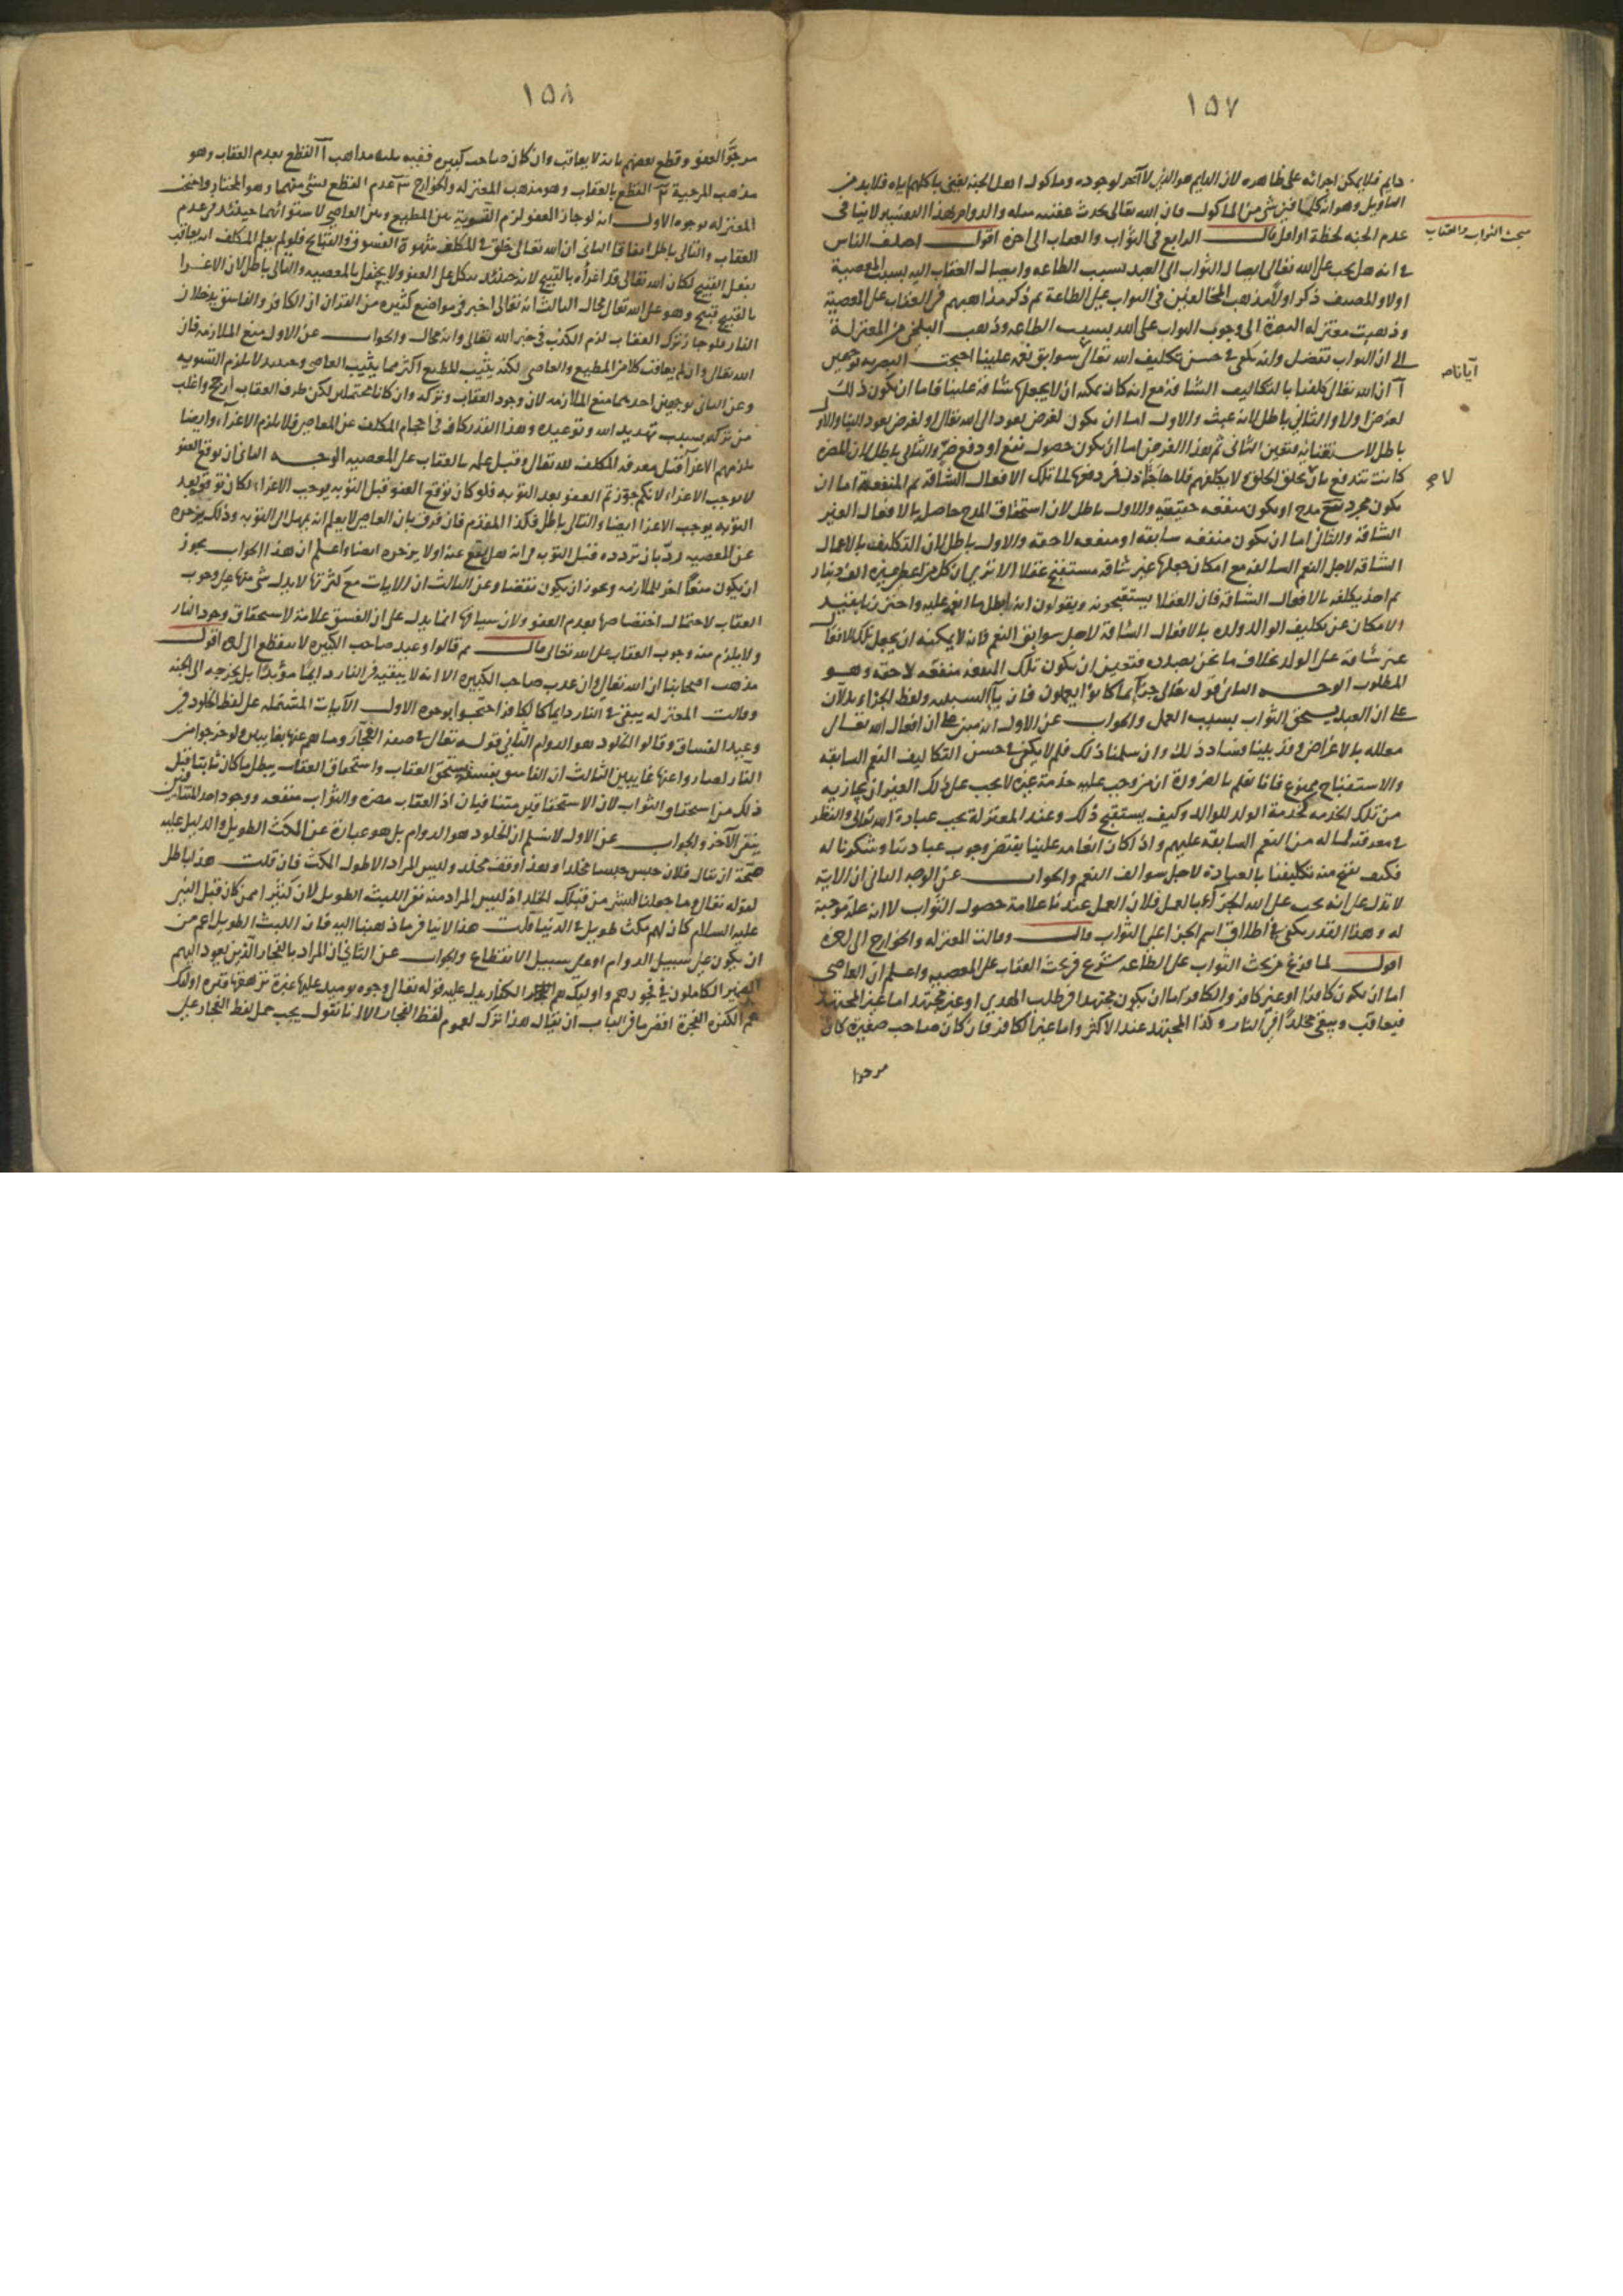 ١٥٧
دايم فلا يمكن اجرائه على ظاهره لان الدايم هو الذى لا آخر لوجوده وماكول اهل الجنة يفنى باكلهم اياه فلا بد من
التاويل وهو انه كلما فنى شى من الماكول فان الله تعالى يحدث عقيبه مثله والدوام بهذا التفسير لا ينافى
عدم الجنه لحظة او اقل قال الرابع فى الثواب والعقاب الى اخره اقول اختلف الناس
مبحث الثواب والعقاب
فى انه هل يجب على الله تعالى ايصال الثواب الى العبد بسبب الطاعه وايصال العقاب اليه بسبب المعصية
اولا والمصنف ذكر اولا مذهب المخالفين فى الثواب على الطاعة ثم ذكر مذاهبهم فى العقاب على المعصية
وذهبت معتزله البصرة الى وجوب الثواب على الله بسبب الطاعه وذهب البلخى من المعتزلة
الى ان الثواب تفضل وانه يكفى فى حسن تكليف الله تعالى سوابق نعمه علينا احتجت البصريه بوجهين
آ ان الله تعالى كلفنا بالتكاليف الشاقه مع انه كان يمكنه ان لا يجعلها شاقه علينا فاما ان يكون ذلك
لغرض اولا والثانى باطل لانه عبث والاول اما ان يكون لغرض يعود الى الله تعالى او لغرض يعود الينا والاول
باطل لاستغنائه فتعين الثانى ثم هذا الغرض اما ان يكون حصول نفع او دفع ضر والثانى باطل لان المضره
كانت تندفع بان يخلق الخلق ولا يكلفهم فلا حاجة اذن فى دفعها الى تلك الافعال الشاقه ثم المنفعة اما ان
يكون مجرد مدح او يكون منفعه حقيقيه والاول باطل لان استحقاق المدح حاصل بالافعال الغير
الشاقه والثانى اما ان يكون منفعه سابقة او منفعه لاحقه والاول باطل لان التكليف بالاعمال
الشاقه لاجل النعم السالفه مع امكان جعلها غير شاقه مستقبح عقلا الا ترى ان كل من اعطى غيره الف دينار
ثم اخذ يكلفه بالافعال الشاقه فان العقلا يستقبحونه ويقولون انه ابطل ما انعم عليه واحترزنا بقيد
الامكان عن تكليف الوالد ولده بالافعال الشاقة لاجل سوابق النعم فانه لا يمكنه ان يجعل تلك الافعال
غير شاقة على الولد بخلاف ما نحن بصدده فتعين ان يكون تلك المنفعه منفعه لاحقه وهو
المطلوب الوجه الثانى قوله تعالى جزآء بما كانوا يعملون فان بآ السببيه ولفظ الجزاء يدلان
على ان العبد يستحق الثواب بسبب العمل والجواب عن الاول انه مبنى على ان افعال الله تعالى
معلله بالاغراض وقد بينا فساد ذلك وان سلمنا ذلك فلم لا يكفى فى حسن التكاليف النعم السابقه
والاستقباح ممنوع فانا نعلم بالضرورة ان من وجب عليه خدمة غيره لا يجب على ذلك الغير ان يجازيه
من تلك الخدمه كخدمة الولد للوالد وكيف يستقبح ذلك وعند المعتزلة يجب عبادة الله تعالى والنظر
فى معرفته لما له من النعم السابقة عليهم واذا كان انعامه علينا يقتضى وجوب عبادتنا وشكرنا له
فكيف يقبح منه تكليفنا بالعبادة لاجل سوالف النعم والجواب عن الوجه الثانى ان الاية
لا تدل على انه يجب على الله الجزآء بالعمل فلان العمل عندنا علامة حصول الثواب لا انه علة موجبة
له وهذا القدر يكفى فى اطلاق اسم الجزا على الثواب قال وقالت المعتزله والخوارج الى اخره
اقول لما فرغ من بحث الثواب على الطاعه شرع فى بحث العقاب على المعصيه واعلم ان العاصى
اما ان يكون كافرا او غير كافر والكافر اما ان يكون مجتهدا فى طلب الهدى او غير مجتهد اما غير المجتهد
فيعاقب ويبقى مخلدا فى النار وكذا المجتهد عند الاكثر واما غير الكافر فان كان صاحب صغيرة كان
مرجوا
١٥٨
مرجو العفو وقطع بعضهم بانه لا يعاقب وان كان صاحب كبيره ففيه ثلثه مذاهب آ القطع بعدم العقاب وهو
مذهب المرجية ب القطع بالعقاب وهو مذهب المعتزله والخوارج ج عدم القطع بشى منهما وهو المختار واحتجت
المعتزله بوجوه الاول انه لو جاز العفو لزم التسوية بين المطيع وبين العاصى لاستوائهما حينئذ فى عدم
العقاب والتالى باطل اتفاقا الثانى ان الله تعالى خلق فى المكلف شهوة الفسوق والقبايح فلو لم يعلم المكلف انه يعاقب
بفعل القبيح لكان الله تعالى قد اغرأه بالقبيح لانه حينئذ يتكل على العفو ولا يحتفل بالمعصيه والتالى باطل لان الاغرا
بالقبيح قبيح وهو على الله تعالى محال الثالث انه تعالى اخبر فى مواضع كثيره من القران ان الكافر والفاسق يدخلان
النار فلو جاز ترك العقاب لزم الكذب فى خبر الله تعالى وانه محال والجواب عن الاول بمنع الملازمه فان
الله تعالى وان لم يعاقب كلا من المطيع والعاصى لكنه يثيب المطيع اكثر مما يثيب العاصى وحينئذ لا يلزم التسويه
وعن الثانى بوجهين احدهما منع الملازمه لان وجود العقاب وتركه وان كانا محتملين لكن طرف العقاب ارجح واغلب
من تركه بسبب تهديد الله وتوعيده وهذا القدر كاف فى احجام المكلف عن المعاصى فلا يلزم الاغراء وايضا
يلزمهم الاغرآ قبل معرفه المكلف لله تعالى وقبل علمه بالعقاب على المعصيه الوجه الثانى ان توقع العفو
لا يوجب الاغراء لانكم جوزتم العفو بعد التوبه فلو كان توقع العفو قبل التوبه يوجب الاغراء لكان توقعه بعد
التوبه يوجب الاغرا ايضا والتالى باطل فكذا المقدم فان فرق بان العاصى لا يعلم انه يمهل الى التوبه وذلك يزجره
عن المعصيه رد بان تردده قبل التوبه فى انه هل يقع عنه اولا يزجره ايضا واعلم ان هذا الجواب يجوز
ان يكون منعا اخر للملازمه ويجوز ان يكون نقضا وعن الثالث ان الايات مع كثرتها لا يدل شى منها على وجوب
العقاب لاحتمال اختصاصها بعدم العفو ولان سياقها انما يدل على ان الفسق علامة لاستحقاق وجود النار
ولا يلزم منه وجوب العقاب على الله تعالى قال ثم قالوا وعيد صاحب الكبيره لا ينقطع الى اخره اقول
مذهب اصحابنا ان الله تعالى وان عذب صاحب الكبيره الا انه لا يبقيه فى النار دايما مؤبدا بل يخرجه الى الجنه
وقالت المعتزله يبقى فى النار دايما كالكافر احتجوا بوجوه الاول الآيات المشتمله على لفظ الخلود فى
وعيد الفساق وقالوا الخلود هو الدوام الثانى قوله تعالى فى صفة الفجآر وما هم عنها بغايبين ولو خرجوا من
النار لصاروا عنها غايبين الثالث ان الفاسق بفسقه يستحق العقاب واستحقاق العقاب يبطل ما كان ثابتا قبل
ذلك من استحقاق الثواب لان الاستحقاقين متنافيان اذ العقاب مضره والثواب منفعه ووجود احد المتنافيين
ينفى الآخر والجواب عن الاول لا نسلم ان الخلود هو الدوام بل هو عبارة عن المكث الطويل والدليل عليه
صحة ان يقال فلان حبس حبسا مخلدا وهذا وقف مخلد وليس المراد الا طول المكث فان قلت هذا باطل
لقوله تعالى وما جعلنا لبشر من قبلك الخلد اذ ليس المراد منه نفى اللبث الطويل لان كثيرا ممن كان قبل النبى
عليه السلام كان لهم مكث طويل فى الدنيا قلت هذا لا ينافى ما ذهبنا اليه فان اللبث الطويل اعم من
ان يكون على سبيل الدوام او على سبيل الانقطاع والجواب عن الثانى ان المراد بالفجار الذين يعود اليهم
الضمير الكاملون فى فجورهم واوليك هم الكفار يدل عليه قوله تعالى وجوه يوميذ عليها غبرة ترهقها قترة اوليك
هم الكفره الفجرة اقصى ما فى الباب ان يقال هذا ترك لعموم لفظ الفجار الا انا نقول يجب حمل لفظ الفجار على